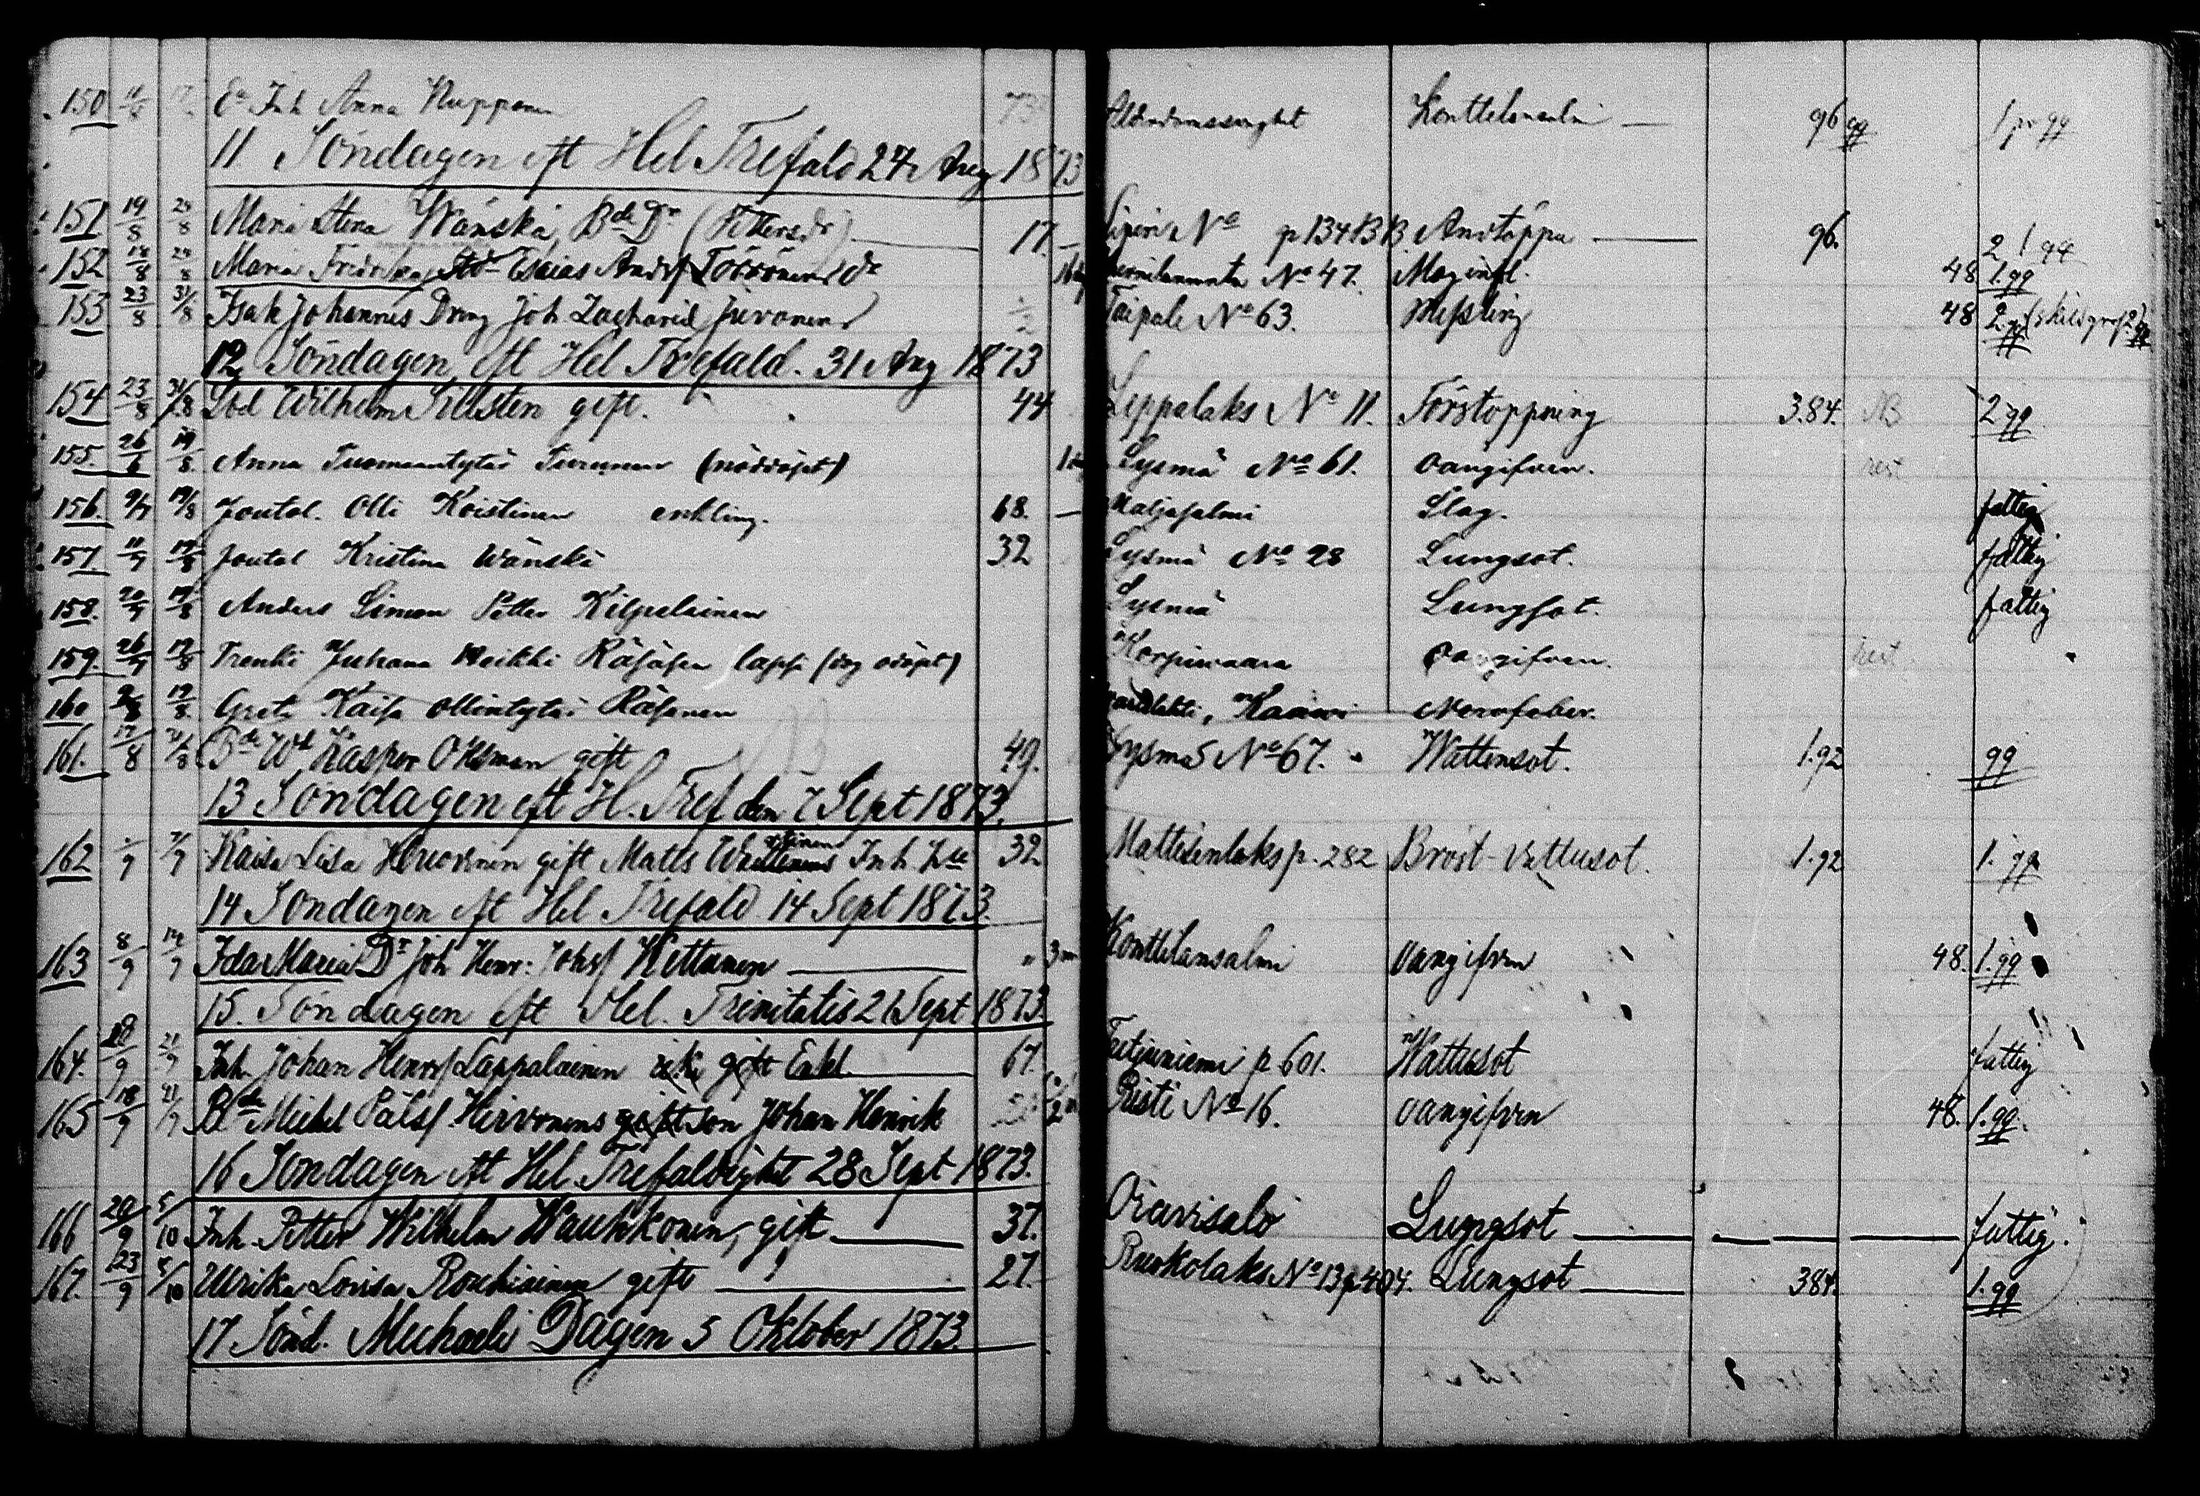 150 E. Inh Anna Nuppanen 73 Ålderdomssvaghet Konttilansalmi — 96 gg 1 pr gg
11 Söndagen eft Hel Trefald 24 Aug 1873
151 19/8 24/8 Maria Stina Wänskä, Bde Dr (Pettersdr) — 17. — Liperi No p 134 BB Andtäppa — 96. 2 1 gg
152 18/8 24/8 Maria Fredrika Esaias Andsf Törrönens dr No 47. Maginfl. 48 1.gg
153 23/8 31/8 Isak Johannes Dreng Joh Zacharid Jurvanens Taipale No 63. Messling 48 2
12 Söndagen eft Hel Trefald. 31 Aug 1873
154 23/8 31/8 Sod Wilhelm Sillsten gift. 44 Leppälaks No 11. Förstoppning 3.84. NB 2 gg
155. 19/8 Anna Tuomaantytär Turunen Sysmä No 61. oangifven. rest
156. 9/7 19/8 Joutol. Olli Koistinen enkling. 68. — Maljasalmi Slag. fattig
157 11/7 19/8 Joutol Kristina Wänskä 32 Sysmä No 28 Lungsot. fattig
158. 20/7 19/8 Anders Simon Petter Kilpelainen Sysmä Lungsot. fattig
159. 26/7 19/8 Trenki Juhana Heikki Räsäsen lapsi Korpivaara oangifven. rest
160 19/8. Greta Kaisa Ollintytär Räsänen Kaavi Nervfeber.
161. 17/8 31/8 Bde Wd Kasper Oksman gift 49. Sysmä No 67. Wattensot. 1.92 gg
13 Söndagen eft H. Tref den 7 Sept 1873.
162 1/9 7/9 Kaisa Lisa Huovinen gift Matts Inh 32 Mattisenlaks p. 282 Bröst-vattusot. 1.92 1. gg
14 Söndagen eft Hel Trefald 14 Sept 1873.
163 8/9 14/9 Ida Maria Dr Joh Henr: Johsf Hettunen — 3 m Konttilansalmi oangifven 48. 1.gg
15. Söndagen eft Hel. Trinitatis 21 Sept 1873
164. 21/9 Inh. Johan Henrsf Lappalainen gift Enkl — 67. p 601. Wattusot fattig
165 18/9 21/9 Bde Mickel Pålsf Hirvonens gift son Johan Henrik Risti No 16. oangifven 48. 1.gg.
16 Söndagen eft Hel Trefaldighet 28 Sept 1873.
166 20/9 5/10 Inh. Petter Wilhelm Waukkonen, gift — 37. Oravisalo Lungsot — fattig.
167. 23/9 5/10 Ulrika Lovisa Rouhiainen gift — 27. — Ruokolaks No 13 p 404. Lungsot — 384. 1.gg
17. Sönd. Michaeli Dagen 5 Oktober 1873.